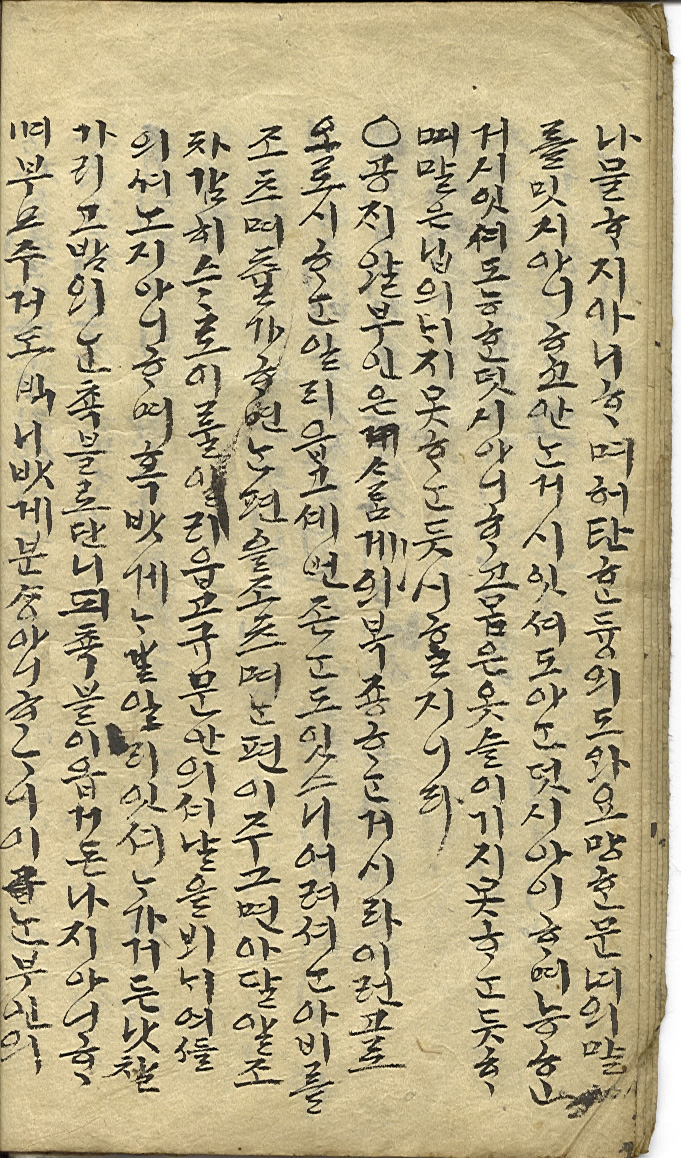 나믈ᄒᆞ지아니ᄒᆞ며허탄ᄒᆞᆫ듕의도와요망ᄒᆞᆫ문녀의말
를밋지아니ᄒᆞ고안ᄂᆞᆫ거시잇셔도아ᄂᆞᆫ덧시아이ᄒᆞ며능ᄒᆞᆫ
거시잇셔도능ᄒᆞᆫ덧시아니ᄒᆞ고몸은옷슬이기지못ᄒᆞᄂᆞᆫ듯ᄒᆞ
며말은닙의ᄂᆡ지못ᄒᆞᄂᆞᆫ듯시ᄒᆞᆯ지니라
○공지왈부인은사ᄅᆞᆷ게의복죵ᄒᆞᄂᆞᆫ거시라이런고로
오로시ᄒᆞᄂᆞᆫ알리읍고셰번존ᄂᆞᆫ도잇스니어려셔ᄂᆞᆫ아비를
조츠며츌가ᄒᆞ면ᄂᆞᆷ편을조츠며ᄂᆞᆷ편이주그면아달알조
차감히스ᄉᆞ로이룰알리읍고규문안의셔날을뵈ᄂᆡ여들
의셔노지아니ᄒᆞ며혹밧게ᄂᆞ갈알리잇셔ᄂᆞ가거든낫찰
가리고밤의ᄂᆞᆫ쵹불로단니되쵹불이읍거든나지아니ᄒᆞ
며부모주거도ᄇᆡᆨ니밧게분상아니ᄒᆞᄂᆞ니이ᄂᆞᆫ부인의